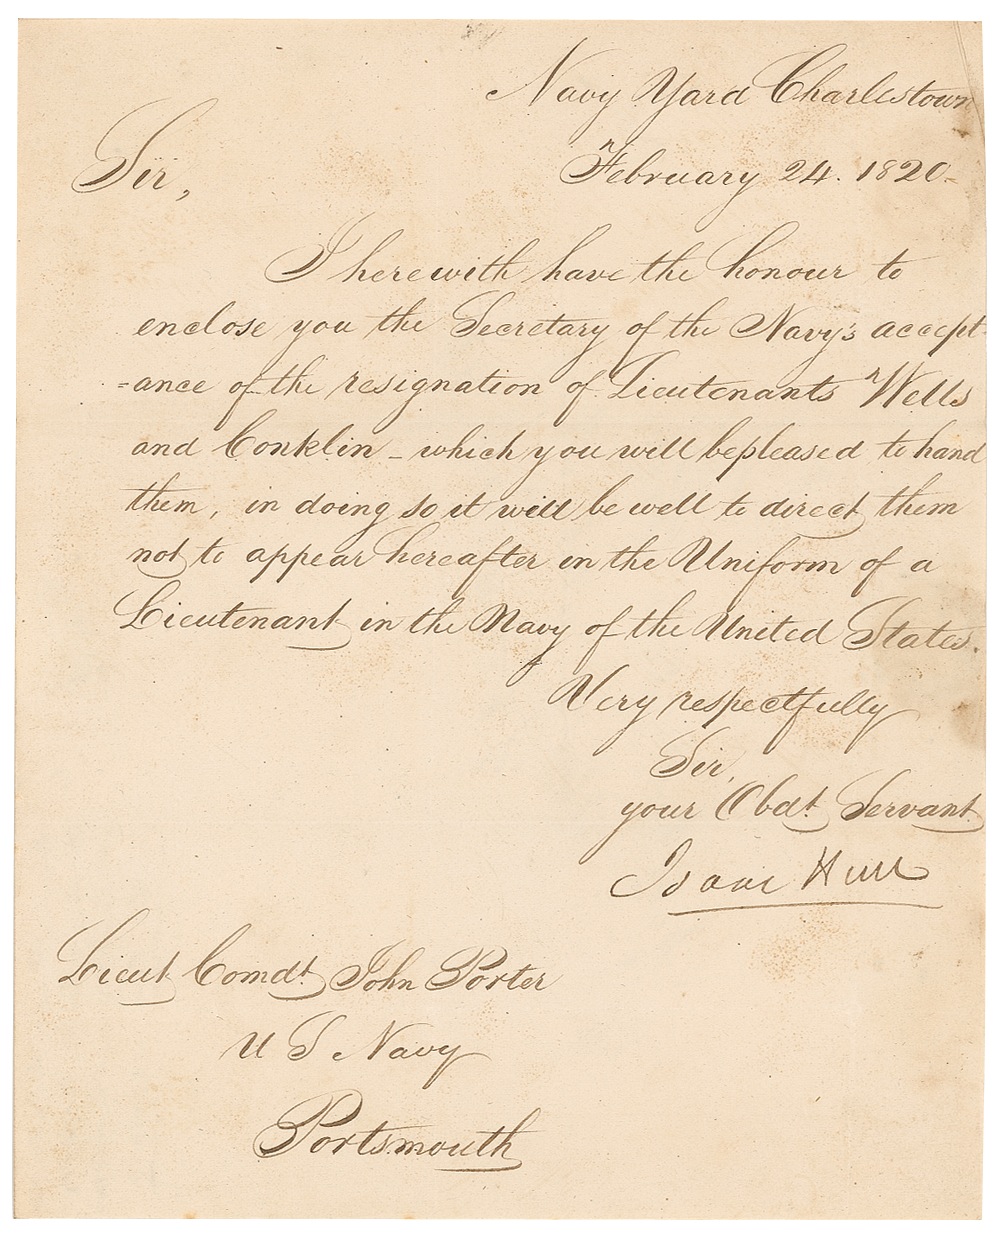 Navy Yard Charlestown
February 24. 1820-
Sir,
I herewith have the honour to
enclose you the Secretary of the Navy's accept-
=ance of the resignation of Lieutenants Wells
and Conklin - which you will be pleased to hand
them, in doing so it will be well to direct them
not to appear hereafter in the Uniform of a
Lieutenant in the Navy of the United States.
Very respectfully
Sir,
your Obdt. Servant
Isaac Hull
Lieut Comdt. John Porter
U S Navy
Portsmouth